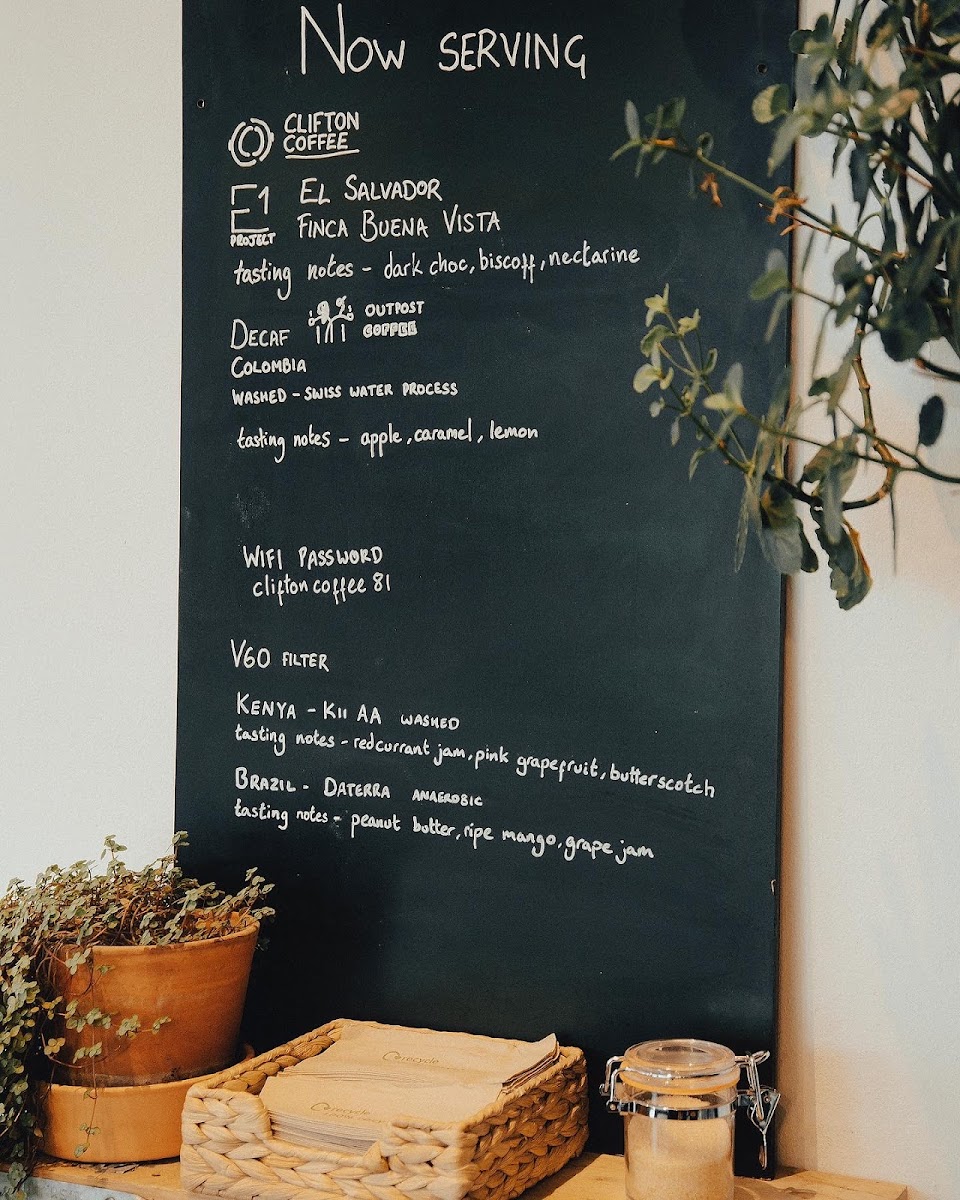 Now SERVING
CLIFTON
COFFEE
E1
PROJECT
EL SALVADOR
FINCA BUENA VISTA
tasting notes - dark choc, biscoff, nectarine
DECAF
OUTPOST
COFFEE
COLOMBIA
WASHED - SWISS WATER PROCESS
tasting notes - apple, caramel, lemon
WIFI PASSWORD
clifton coffee 81
V60 FILTER
KENYA - KII AA WASHED
tasting notes - redcurrant jam, pink grapefruit, butterscotch
BRAZIL - DATERRA ANAEROBIC
tasting notes - peanut butter, ripe mango, grape jam
recycle
recycle